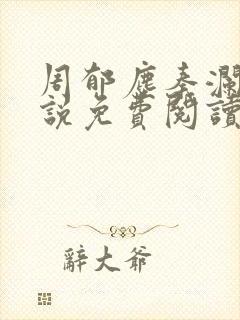 周郁塵秦瀾
說免費閱讀
辭大爺